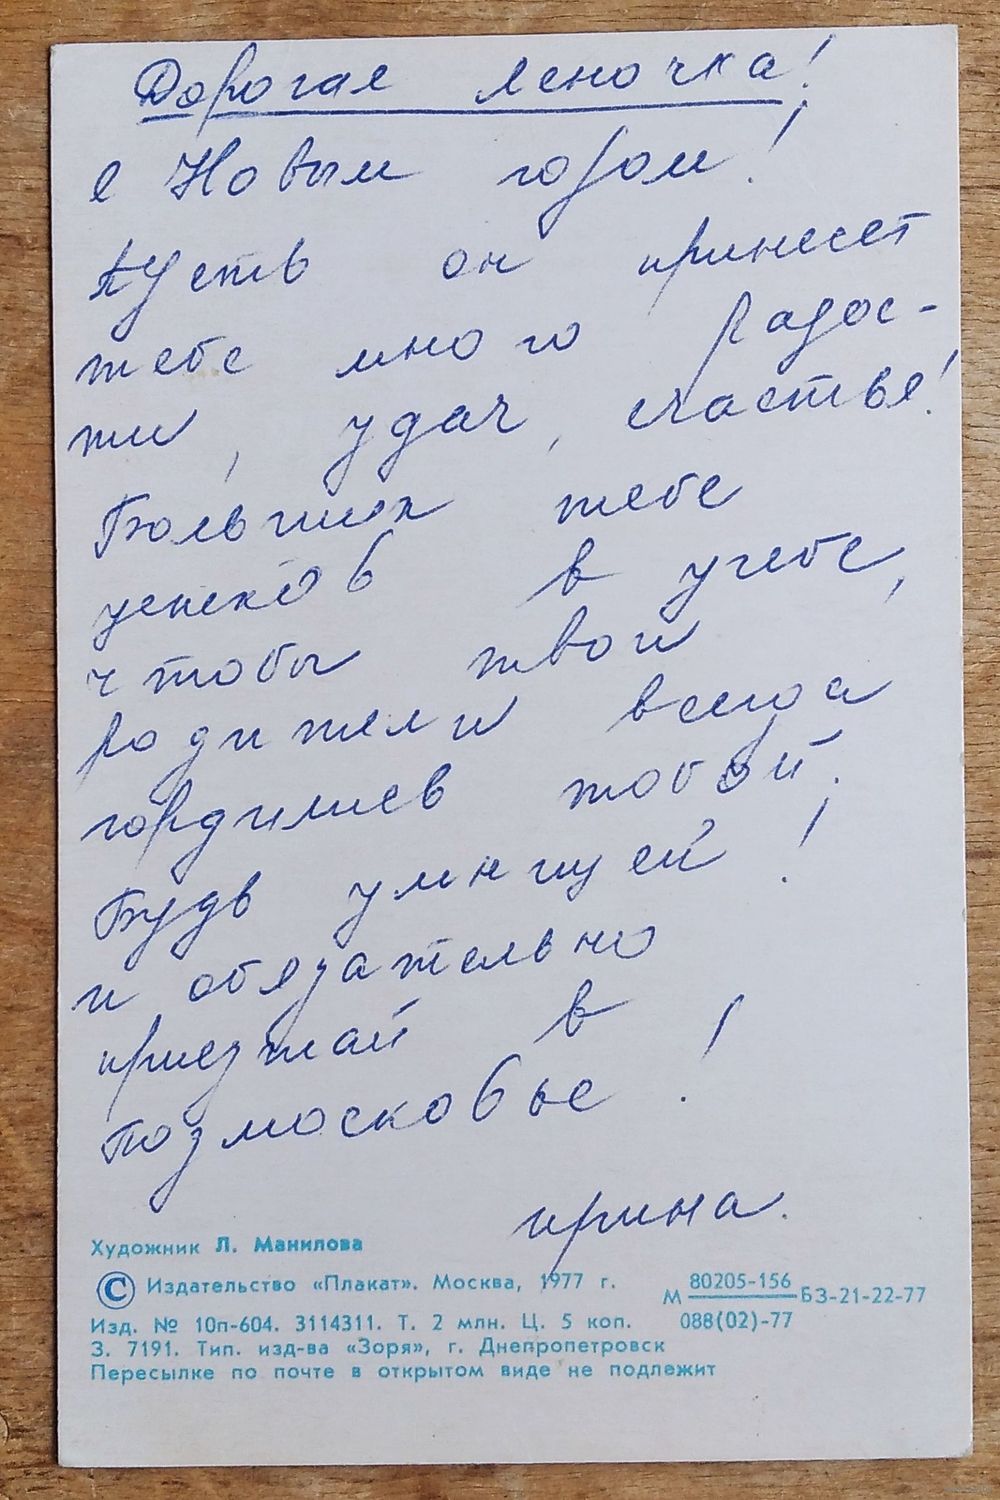 Дорогая Леночка!
С Новым годом!
Пусть он принесет
тебе много радос-
ти, удач, счастья!
Больших тебе
успехов в учебе,
чтобы твои
родители всегда
гордились тобой.
Будь умницей!
и обязательно
приезжай в
Подмосковье!
Ирина.
Художник Л. Манилова
© Издательство «Плакат». Москва, 1977 г.
М 80205-156 БЗ-21-22-77
088(02)-77
Изд. № 10п-604. 3114311. Т. 2 млн. Ц. 5 коп.
З. 7191. Тип. изд-ва «Зоря», г. Днепропетровск
Пересылке по почте в открытом виде не подлежит